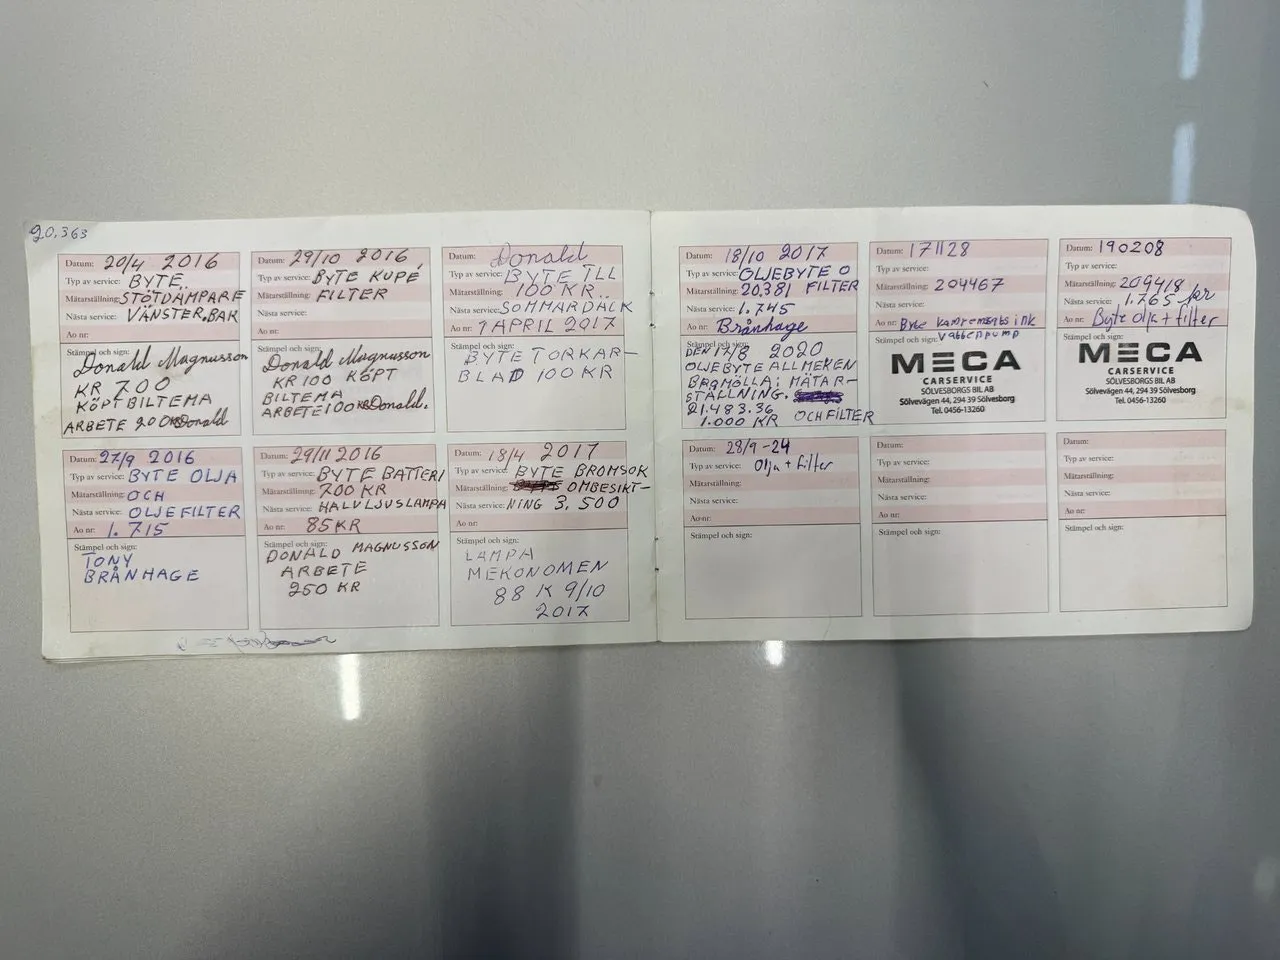 20,363
Datum: 20/4 2016
Typ av service: BYTE
Mätarställning: STÖTDÄMPARE
Nästa service: VÄNSTER.BAK
Ao nr:
Stämpel och sign:
Donald Magnusson
KR 700
KÖPT BILTEMA
ARBETE 200 KR Donald
Datum: 29/10 2016
Typ av service: BYTE KUPÉ
Mätarställning: FILTER
Nästa service:
Ao nr:
Stämpel och sign:
Donald Magnusson
KR 100 KÖPT
BILTEMA
ARBETE 100 KR Donald.
Datum: Donald
Typ av service: BYTE TLL
Mätarställning: 100 KR
Nästa service: SOMMARDÄCK
Ao nr: 1 APRIL 2017
Stämpel och sign:
BYTE TORKAR-
BLAD 100 KR
Datum: 27/9 2016
Typ av service: BYTE OLJA
Mätarställning: OCH
Nästa service: OLJEFILTER
Ao nr: 1.715
Stämpel och sign:
TONY
BRÅNHAGE
Datum: 29/11 2016
Typ av service: BYTE BATTERI
Mätarställning: 700 KR
Nästa service: HALVLJUSLAMPA
Ao nr: 85 KR
Stämpel och sign:
DONALD MAGNUSSON
ARBETE
250 KR
Datum: 18/4 2017
Typ av service: BYTE BROMSOK
Mätarställning: OMBESIKT-
Nästa service: NING 3,500
Ao nr:
Stämpel och sign:
LAMPA
MEKONOMEN
88 K 9/10
2017
Datum: 18/10 2017
Typ av service: OLJEBYTE O
Mätarställning: 20,381 FILTER
Nästa service: 1.745
Ao nr: Brånhage
Stämpel och sign:
DEN 17/8 2020
OLJEBYTE ALLMEKEN
BROMÖLLA: MÄTAR-
STÄLLNING.
21.483.36
1.000 KR OCH FILTER
Datum: 171128
Typ av service:
Mätarställning: 204467
Nästa service:
Ao nr: Byte kamremsats ink
Vattenpump
Stämpel och sign:
MECA
CARSERVICE
SÖLVESBORGS BIL AB
Sölvevägen 44, 294 39 Sölvesborg
Tel. 0456-13260
Datum: 190208
Typ av service:
Mätarställning: 209418
Nästa service: 1.765 pr
Ao nr: Byte olja + filter
Stämpel och sign:
MECA
CARSERVICE
SÖLVESBORGS BIL AB
Sölvevägen 44, 294 39 Sölvesborg
Tel. 0456-13260
Datum: 28/9-24
Typ av service: Olja + filter
Mätarställning:
Nästa service:
Ao nr:
Stämpel och sign:
Datum:
Typ av service:
Mätarställning:
Nästa service:
Ao nr:
Stämpel och sign:
Datum:
Typ av service:
Mätarställning:
Nästa service:
Ao nr:
Stämpel och sign: